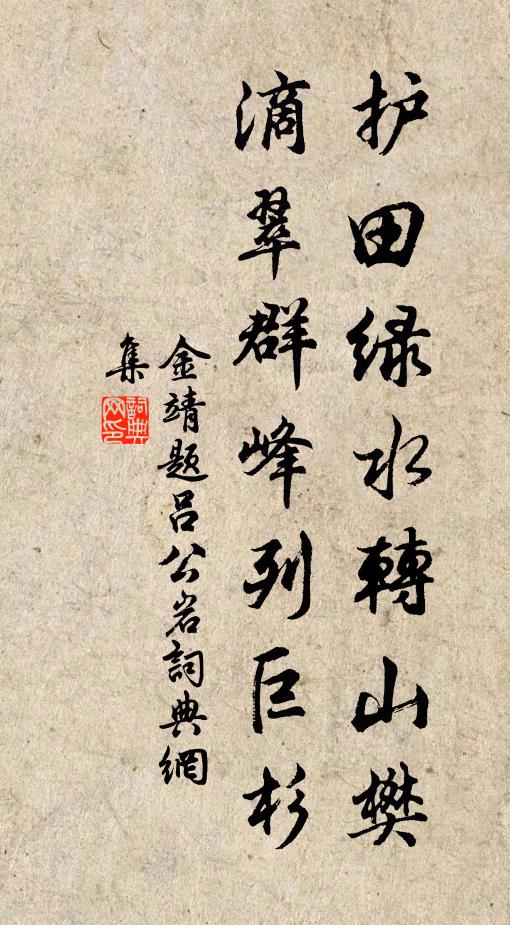 护田绿水轉山樊
滴翠群峰列巨杉
金靖题吕公岩詞典網
集
詞典
网印